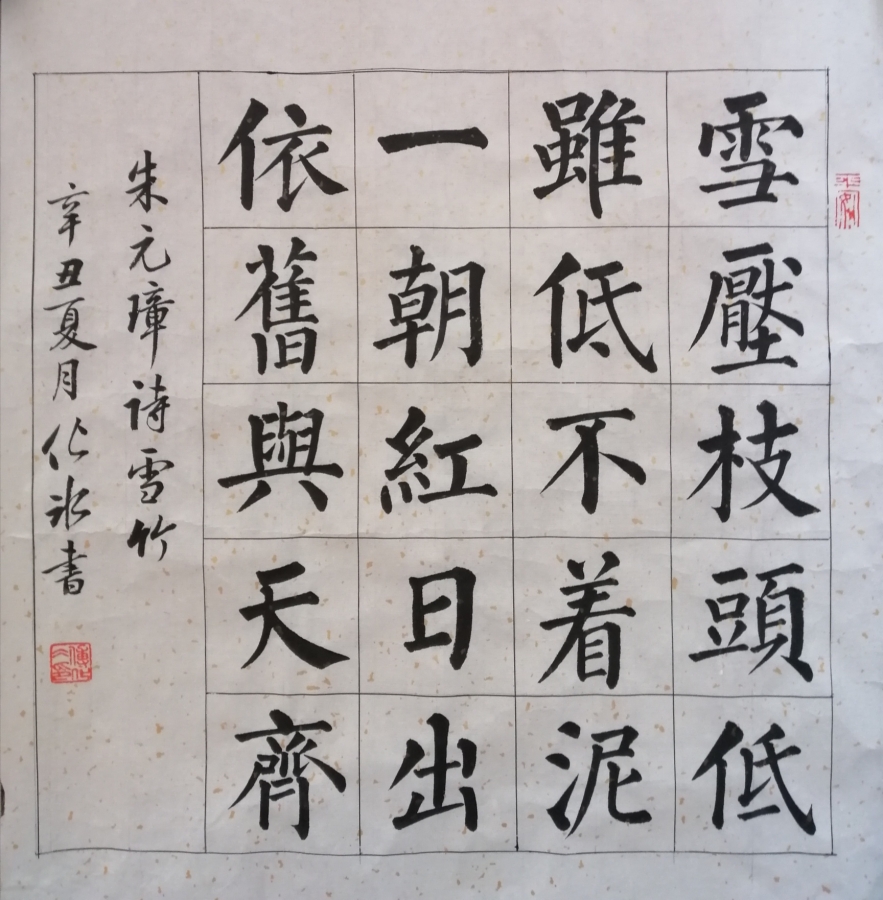 雪壓枝頭低
雖低不着泥
一朝紅日出
依舊與天齊
朱元璋詩雪竹
辛丑夏月化冰書